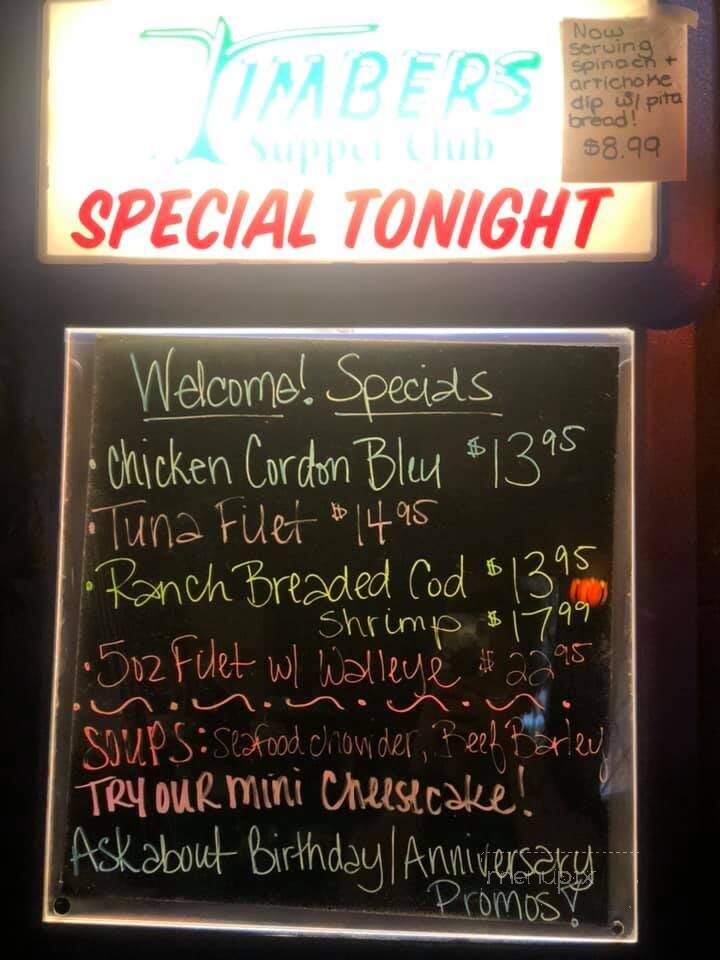 TIMBERS
Supper Club
SPECIAL TONIGHT
Now
serving
spinach +
artichoke
dip w/ pita
bread!
$8.99
Welcome! Specials
• Chicken Cordon Bleu $13.95
• Tuna Filet $14.95
• Ranch Breaded Cod $13.95
Shrimp $17.99
• 5oz Filet w/ Walleye $22.95
SOUPS: Seafood chowder, Beef Barley
TRY OUR mini Cheesecake!
Ask about Birthday/Anniversary
Promos!
menupix